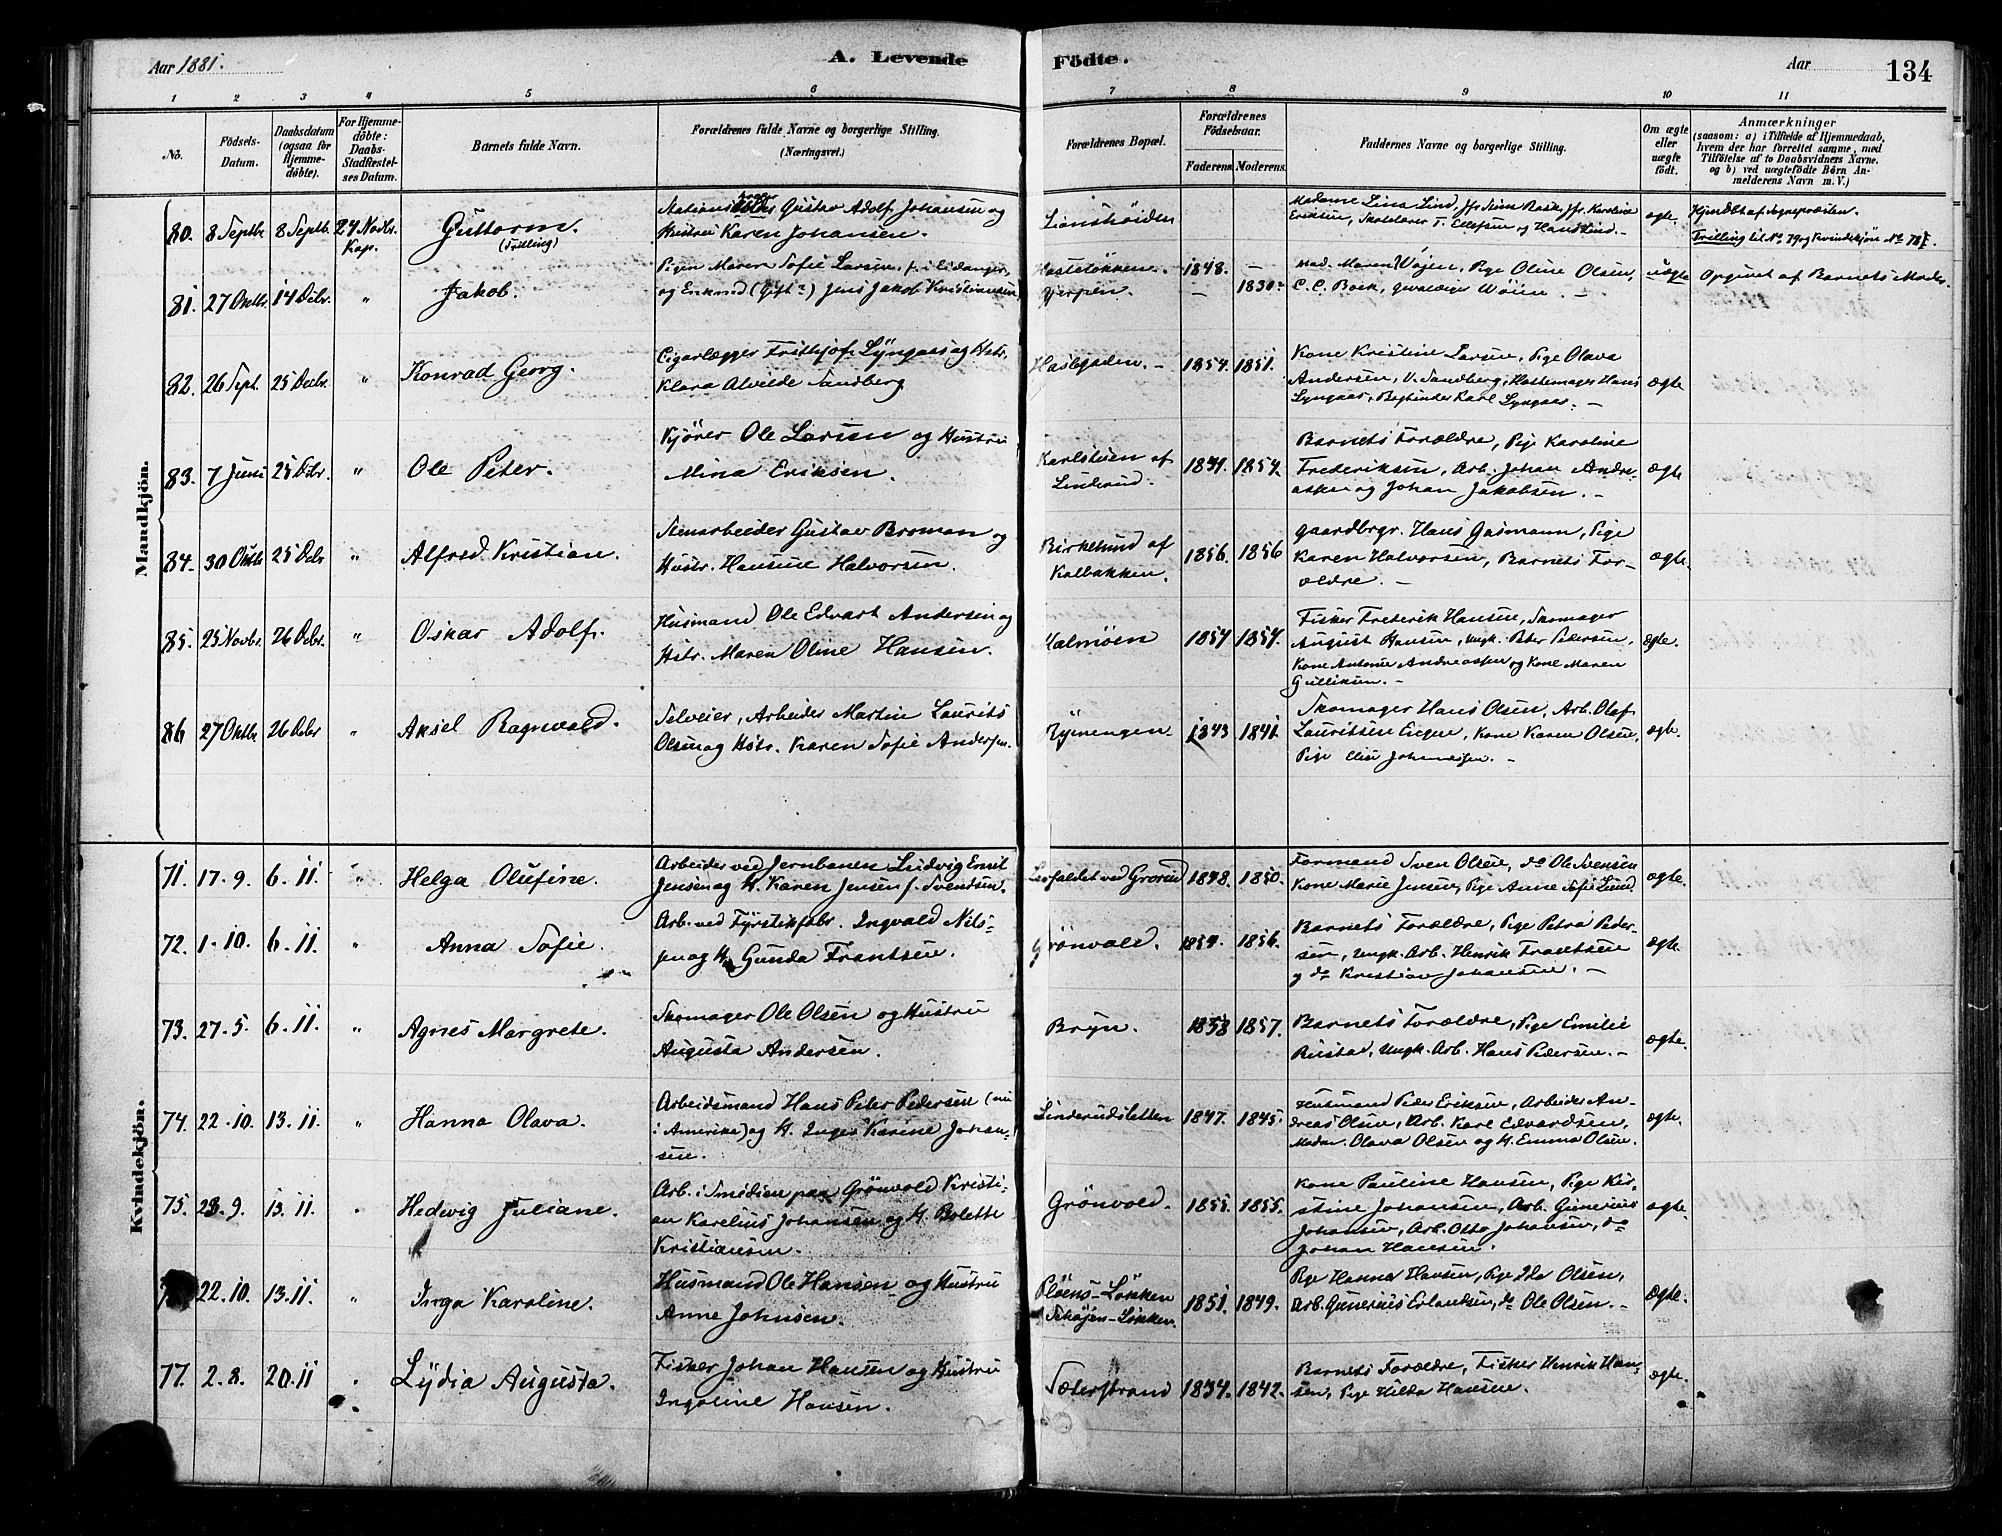 Aar 1881.
A. Levende
Födte.
Aar
134
1 2 3 4 5 6 7 8 9 10 11
No.
Födsels-Datum.
Daabsdatum (ogsaa for Hjemmedöbte).
For Hjemmedöbte: Daabs-Stadfæstelses Datum.
Barnets fulde Navn.
Forældrenes fulde Navne og borgerlige Stilling.
(Næringsvei.)
Forældrenes Bopæl.
Forældrenes Födselsaar.
Faderens. Moderens.
Faddernes Navne og borgerlige Stilling.
Om ægte eller uægte födt.
Anmærkninger
(saasom: a) i Tilfælde af Hjemmedaab, hvem der har forrettet samme, med Tilföielse af to Daabsvidners Navne, og b) ved uægtefödte Börn Anmelderens Navn m. V.)
Mandkjön.
80. 8 Septb. 8 Septb. 27 Novbr. Kap. Guttorm. (Trilling) Gustav Adolf Johansen og Hustru Karen Johansen. Madame Lina Lind, Eriksen, T. Ellefsen og Hans Lind. ægte. Hjmdbt af Sognepræsten. Trilling til No 79 og Kvindekjön No 78
81. 27 Oktbr. 14 Debr. " Jakob. Pigen Maren Sofie Larsen og Enkmd (Gift?) Jens Jakob Kristiansen Gjerpen. 1848. — — 1830? Mad. Maren Wøjen, Pige Oline Olsen, C. C. Boek, Wøien. — uægte Opgivet af Barnets Moder.
82. 26 Sept. 25 Decbr. " Konrad Georg. Cigarlægger Frithjof Lÿngaas og Hstr. Klara Alvilde Sandberg Haslegaden. — 1854. 1851. Kone Kristine Larsen, Pige Olava Andersen, V. Sandberg, Hattemager Hans Lyngaas, Bogbinder Karl Lyngaas. — ægte
83. 7 Juni 25 Debr. " Ole Peter. Kjører Ole Larsen og Hustru Mina Eriksen. Karlstuen af Linderud. 1854. Barnets Forældre, Pige Karoline Frederiksen, Arb. Johan Andreassen og Johan Jakobsen. — ægte
84. 30 Oktb. 25 Debr " Alfred Kristian. Stenarbeider Gustav Broman og Hustr. Hansine Halvorsen. Birkelund af Kalbakken. 1856. 1856 Gaardbrgr. Hans Gasmann, Pige Karen Halvorsen, Barnets Forældre. — ægte.
85. 25 Novbr. 26 Debr. " Oskar Adolf. Husmand Ole Edvart Andersen og Hstr. Maren Oline Hansen. Malmøen 1857 1857. Fisker Frederik Hansen, Skomager August Hansen, Ungk. Peter Pedersen, Kone Antonie Andreassen og Kone Maren Gulliksen. — ægte.
86 27 Oktbr 26 Debr " Aksel Ragnvald. Selveier, Arbeider Martin Laurits Olsen og Hstr. Karen Sofie Andersen. Ryenengen 1843 1841. Skomager Hans Olsen, Arb. Olaf Lauritsen, Kone Karen Olsen, Pige Elise Johannesen. — ægte.
Kvindekjön.
71. 17. 9. 6. 11. " Helga Olufine. Arbeider ved Jernbanen Ludvig Emil Jensen og H. Karen Jensen f. Svensen. ved Grorud 1848. 1850. Formand Sven Olsen, do Ole Svensen Kone Marie Jensen, Pige Anne Sofie Lund. ægte.
72. 1. 10. 6. 11. " Anna Sofie. Arb. ved Fyrstikfabr. Ingvald Nilssen og H. Gunda Frantsen. Grönvold. 1854. 1856. Barnets Forældre, Pige Petra Pedersen, Ungk. Arb. Henrik Frantsen og do Kristian Johansen. — ægte.
73. 27. 5. 6. 11. " Agnes Margrete. Skomager Ole Olsen og Hustru Augusta Andersen. Bryn. 1858 1857. Barnets Forældre, Pige Emilie Rustad, Ungk. Arb. Hans Pedersen. — ægte.
74. 22. 10. 13. 11. " Hanna Olava. Arbeidsmand Hans Peter Pedersen (nu i Amerika) og H. Inger Karine Johansen. Linderudsletten 1847. 1845. Husmand Peder Eriksen, Arbeider Andreas Olsen, Arb. Karl Edvardsen, Madm. Olava Olsen og H. Emma Olsen. ægte.
75. 23. 9. 13. 11. " Hedvig Juliane. Arb. i Smedien paa Grönvold Kristian Karelius Johansen og H. Bolette Kristiansen. Grönvold. 1855. 1855. Kone Pauline Hansen, Pige Kirstine Johansen, Arb. Gunerius Johansen, Arb. Otto Johansen, do Johan Hansen. ægte.
22. 10. 13. 11. " Inga Karoline. Husmand Ole Hansen og Hustru Anne Johnsen. Pløens-Løkken Schøjen-Løkken. 1851. 1849. Pige Hanna Hansen, Pige Ida Olsen, Arb. Gunerius Erlandsen, do Ole Olsen. — Ægte.
77. 2. 8. 20. 11 " Lÿdia Augusta. Fisker Johan Hansen og Hustru Ingoline Hansen. Sæterstrand 1834. 1842. Barnets Forældre, Fisker Henrik Hansen, Pige Hilda Hansen. ægte.